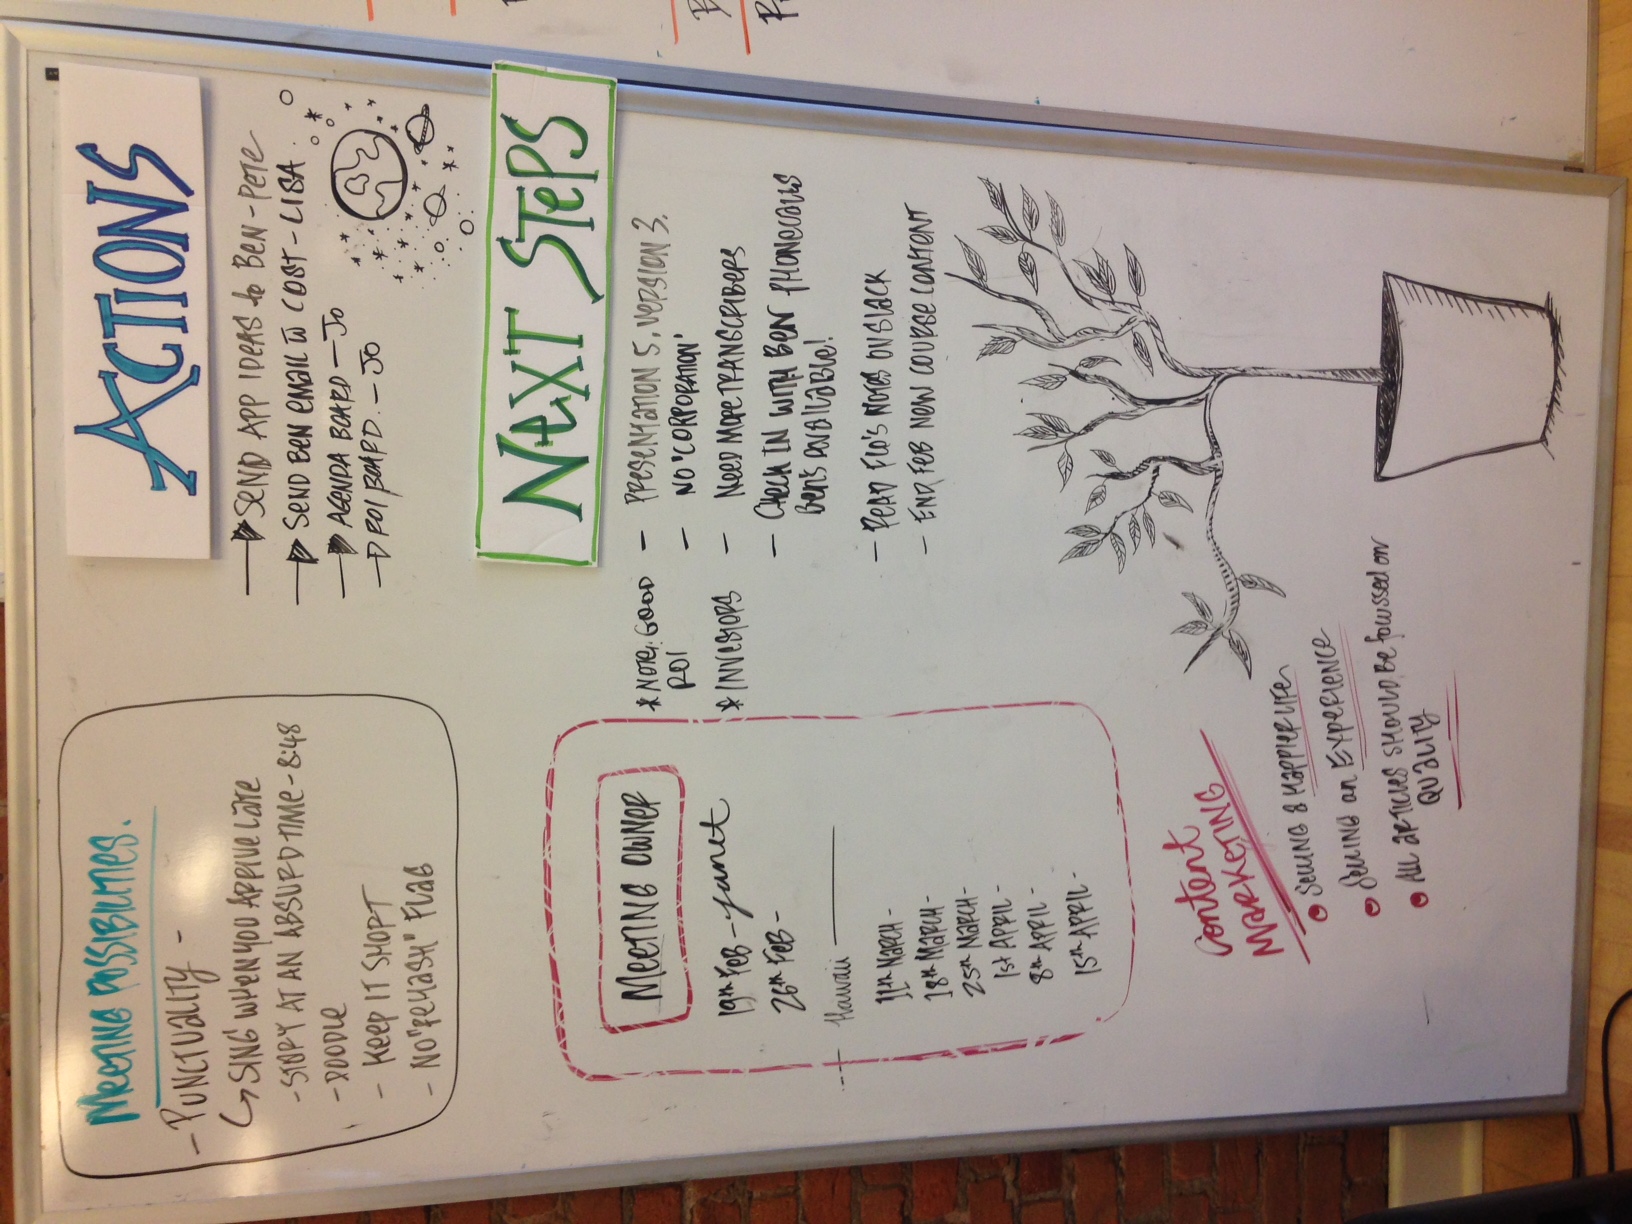 MEETING POSSIBILITIES.
- PUNCTUALITY -
↳ SING WHEN YOU ARRIVE LATE
- START AT AN ABSURD TIME - 8:48
- DOODLE
- KEEP IT SHORT
- NO "REHASH" FLAG
ACTIONS
SEND APP IDEAS to BEN - PETE
SEND BEN EMAIL COST - LISA.
AGENDA BOARD - JO
ROI BOARD. - JO
NEXT STEPS
* NOTE: GOOD ROI
* INVESTORS
- PRESENTATION 5, VERSION 3.
- NO 'CORPORATION'
- NEED MORE TRANSCRIBERS
- CHECK IN WITH BEN PHONECALLS
BEN'S AVAILABLE!
- READ FLO'S NOTES ON SLACK
- END/FEB NEW COURSE CONTENT
MEETING OWNER
19TH FEB - Janet
26TH FEB -
Hawaii
11TH MARCH -
18TH MARCH -
25TH MARCH -
1ST APRIL -
8TH APRIL -
15TH APRIL -
Content
MARKETING
SELLING A HAPPIER LIFE
SELLING an EXPERIENCE
ALL ARTICLES SHOULD BE focussed on
QUALITY